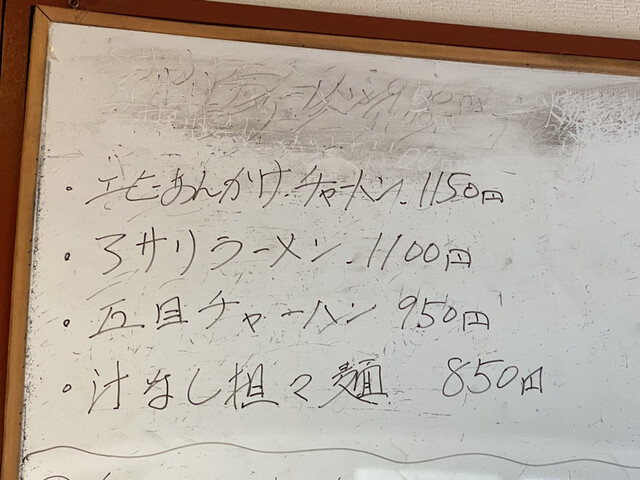 ・エビあんかけチャーハン 1150円
・アサリラーメン 1100円
・五目チャーハン 950円
・汁なし担々麺 850円